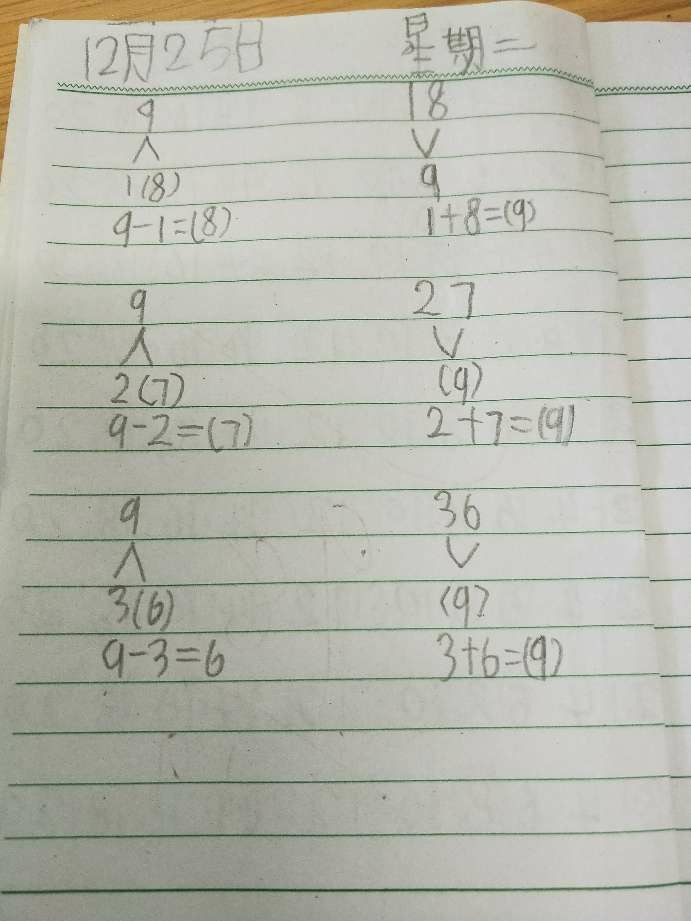 12月25日 星期二
9 18
∧ ∨
1(8) 9
9-1=(8) 1+8=(9)
9 27
∧ ∨
2(7) (9)
9-2=(7) 2+7=(9)
9 36
∧ ∨
3(6) (9)
9-3=6 3+6=(9)